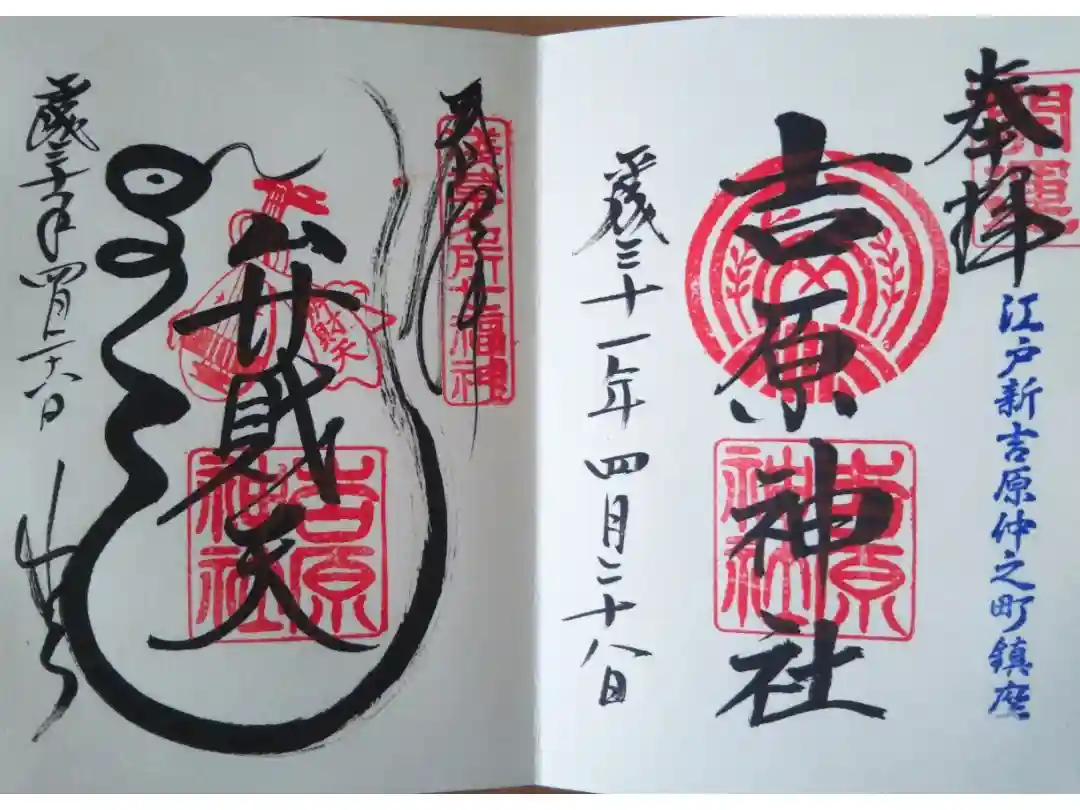 開運
奉拝
江戸新吉原仲之町鎮座
吉原神社
吉原神社
平成三十一年四月二十八日
淺草名所七福神
弁財天
吉原神社
平成三十一年四月二十八日